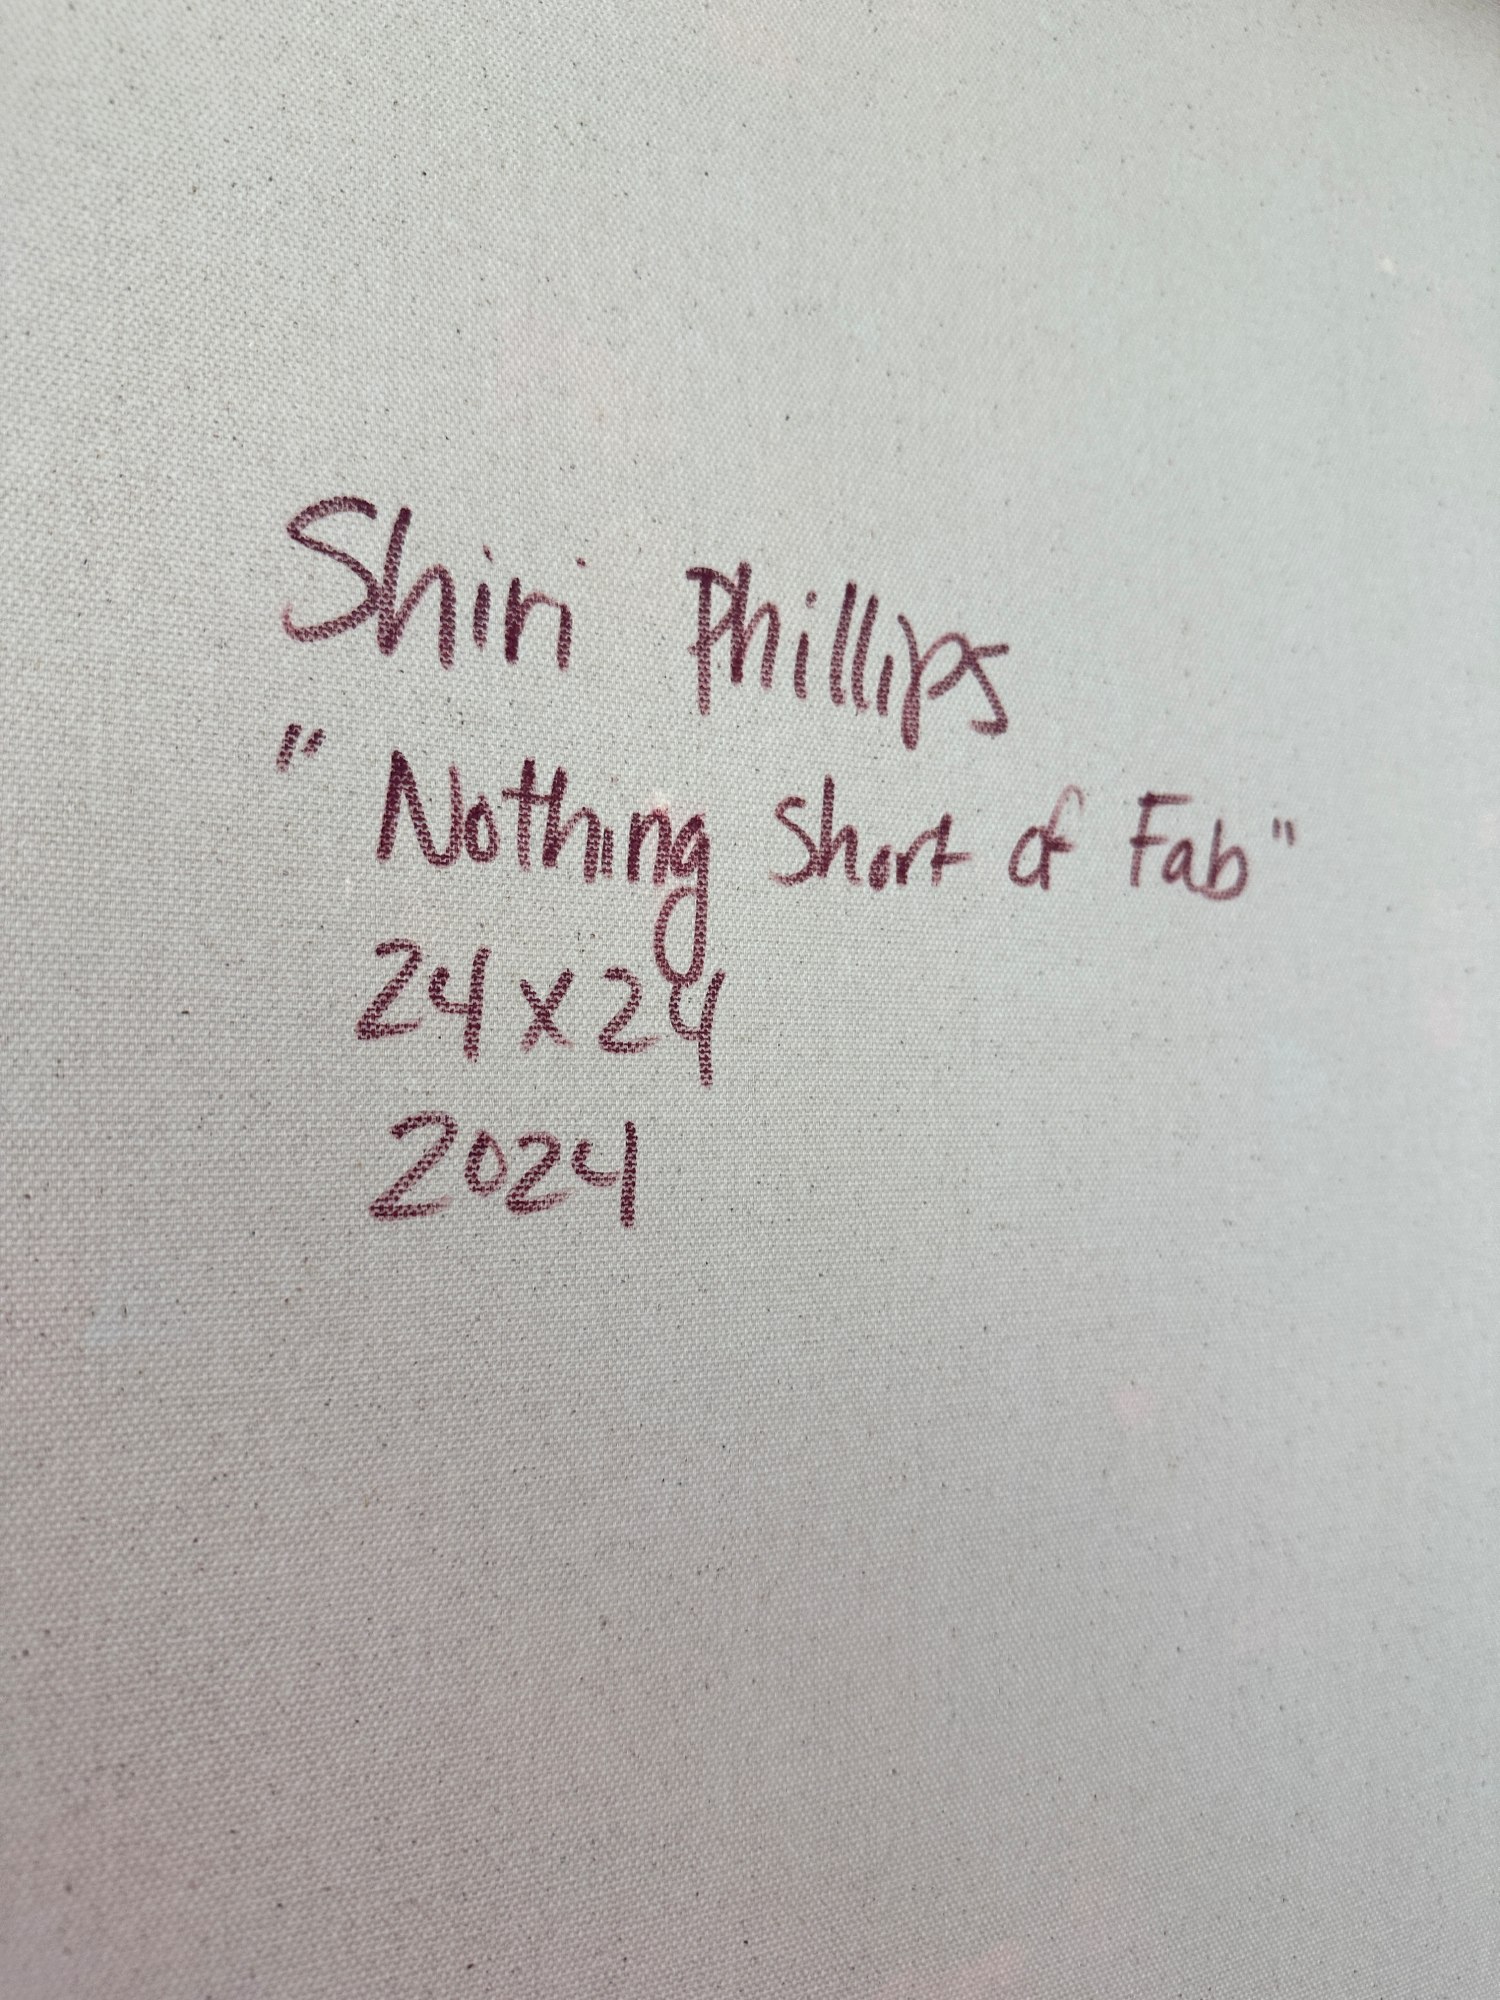 Shiri Phillips
"Nothing Short of Fab"
24x24
2024